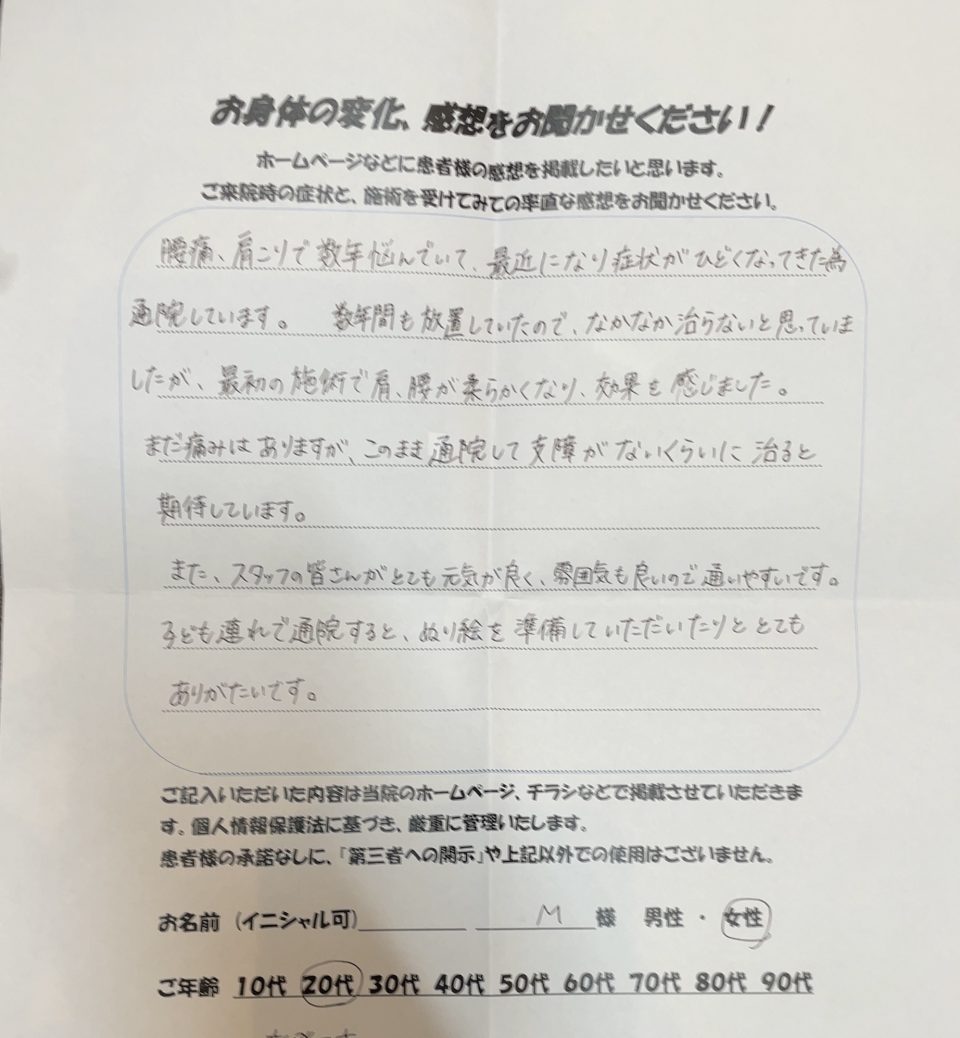 お身体の変化、感想をお聞かせください！
ホームページなどに患者様の感想を掲載したいと思います。
ご来院時の症状と、施術を受けてみての率直な感想をお聞かせください。
腰痛、肩こりで数年悩んでいて、最近になり症状がひどくなってきた為
通院しています。 数年間も放置していたので、なかなか治らないと思っていま
したが、最初の施術で肩、腰が柔らかくなり、効果を感じました。
まだ痛みはありますが、このまま通院して支障がないくらいに治ると
期待しています。
また、スタッフの皆さんがとても元気が良く、雰囲気も良いので通いやすいです。
子ども連れで通院すると、ぬり絵を準備していただいたりととても
ありがたいです。
ご記入いただいた内容は当院のホームページ、チラシなどで掲載させていただきま
す。個人情報保護法に基づき、厳重に管理いたします。
患者様の承諾なしに、「第三者への開示」や上記以外での使用はございません。
お名前 (イニシャル可) M 様 男性・女性
ご年齢 10代 20代 30代 40代 50代 60代 70代 80代 90代